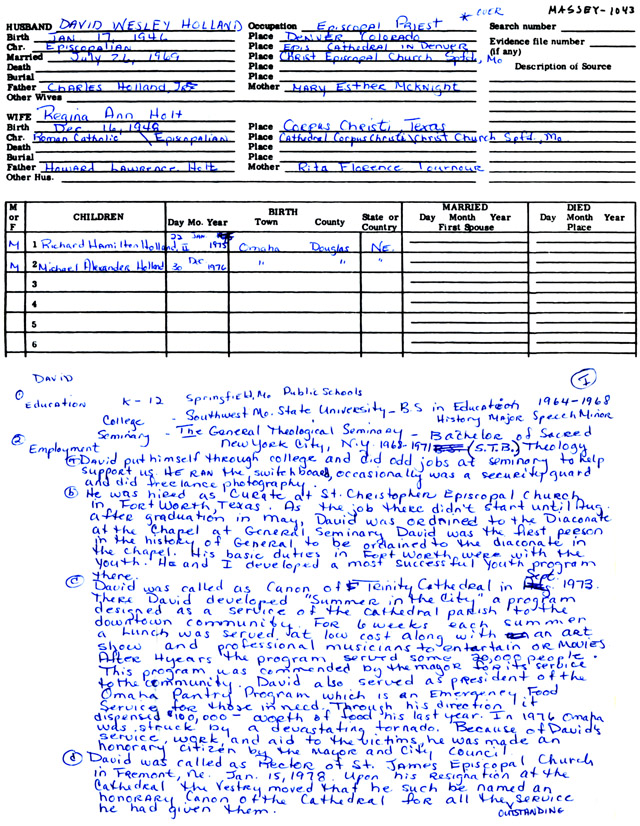 * OVER MASSEY-1043
HUSBAND DAVID WESLEY HOLLAND Occupation EPISCOPAL PRIEST Search number
Birth JAN 17, 1946 Place DENVER COLORADO Evidence file number
Chr. EPISCOPALIAN Place EPIS CATHEDRAL IN DENVER (if any)
Married July 26, 1969 Place Christ Episcopal Church Spfd., Mo Description of Source
Death Place
Burial Place
Father CHARLES Holland, Mother MARY Esther McKnight
Other Wives
WIFE Regina Ann Holt
Birth Dec 16, 1948 Place Corpus Christi, Texas
Chr. Roman Catholic \ Episcopalian Place Cathedral Corpus Christi \ Christ Church Spfd., Mo.
Death Place
Burial Place
Father Howard Lawrence Holt Mother Rita Florence Tournour
Other Hus.
M or F CHILDREN BIRTH MARRIED DIED
Day Mo. Year Town County State or Country Day Month Year First Spouse Day Month Year Place
M 1 Richard Hamilton Holland, II 22 Jan 1975 Omaha Douglas NE.
M 2 Michael Alexander Holland 30 Dec 1976 " " "
3
4
5
6
DAVID I
① Education K-12 Springfield, Mo Public Schools
College - Southwest Mo. State University - B.S in Education 1964-1968
History Major Speech Minor
Seminary - The General Theological Seminary - Bachelor of Sacred
② Employment New York City, N.Y. 1968-1971 (S.T.B.) Theology
ⓐ David put himself through college and did odd jobs at seminary to help
support us. HE RAN the switchboard, occasionally was a security guard
and did freelance photography.
ⓑ He was hired as Curate at St. Christopher Episcopal Church
in Fort Worth, Texas. As the job there didn't start until Aug.
after graduation in may, David was ordained to the Diaconate
at the Chapel at General Seminary David was the first person
in the history of General to be ordained to the diaconate in
the chapel. His basic duties in Fort Worth were with the
youth. He and I developed a most successful youth program
there.
ⓒ David was called as Canon of Trinity Cathedral in Sept. 1973.
There David developed "Summer in the City" a program
designed as a service of the Cathedral parish to the
downtown community. For 6 weeks each summer
a lunch was served at low cost along with an art
show and professional musicians to entertain or movies
After 4 years the program served some 20,000 people.
This program was commended by the mayor for its service
to the community. David also served as president of the
Omaha Pantry Program which is an Emergency Food
Service for those in need. Through his direction it
dispensed $100,000- worth of food his last year. In 1976 Omaha
was struck by a devastating tornado. Because of David's
service, work and aid to the victims, he was made an
honorary citizen by the Mayor and City Council
ⓓ David was called as Rector of St. James Episcopal Church
in Fremont, Ne. Jan. 15, 1978. Upon his resignation at the
Cathedral the Vestry moved that he such be named an
honorary Canon of the Cathedral for all the OUTSTANDING service
he had given them.